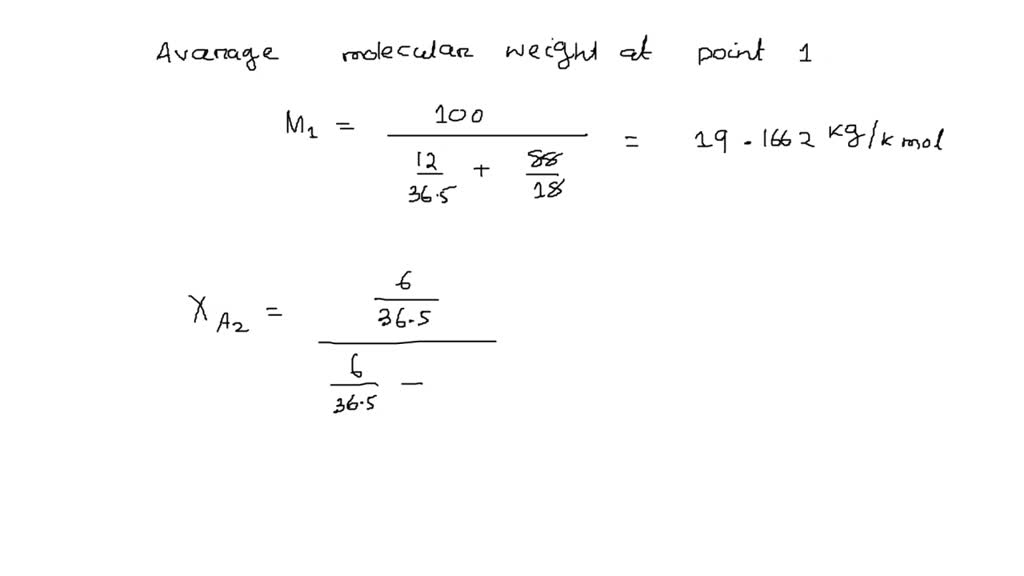 Avarage molecular weight at point 1
M1 = 100 / (12/36.5 + 88/18) = 19.1662 kg/kmol
XA2 = (6/36.5) / (6/36.5 –